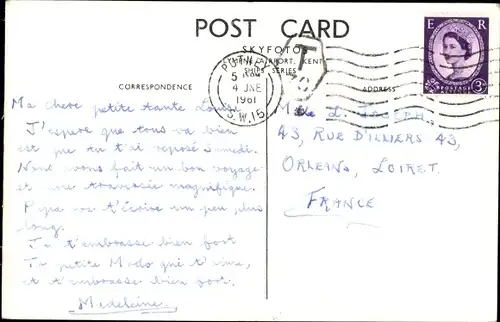 POST CARD
SKYFOTOS
AIRPORT, KENT
SHIPS SERIES
CORRESPONDENCE
ADDRESS
PUTNEY
4 JNE
1961
S.W.15
T
E R
POSTAGE
3D
Ma chere petite tante
J'espere que tous va bien
et que tu t'ai reposé Samedi.
Nous avons fait un bon voyage
et une traversée magnifique.
Papa va t'écrire un peu plus
long.
Je t'embrasse bien fort
Ta petite Mado qui t'aime,
et t'embrasse bien fort.
Madeleine.
Mlle L. JOSEPH
43, RUE D'ILLIERS 43,
ORLEANS, LOIRET.
FRANCE